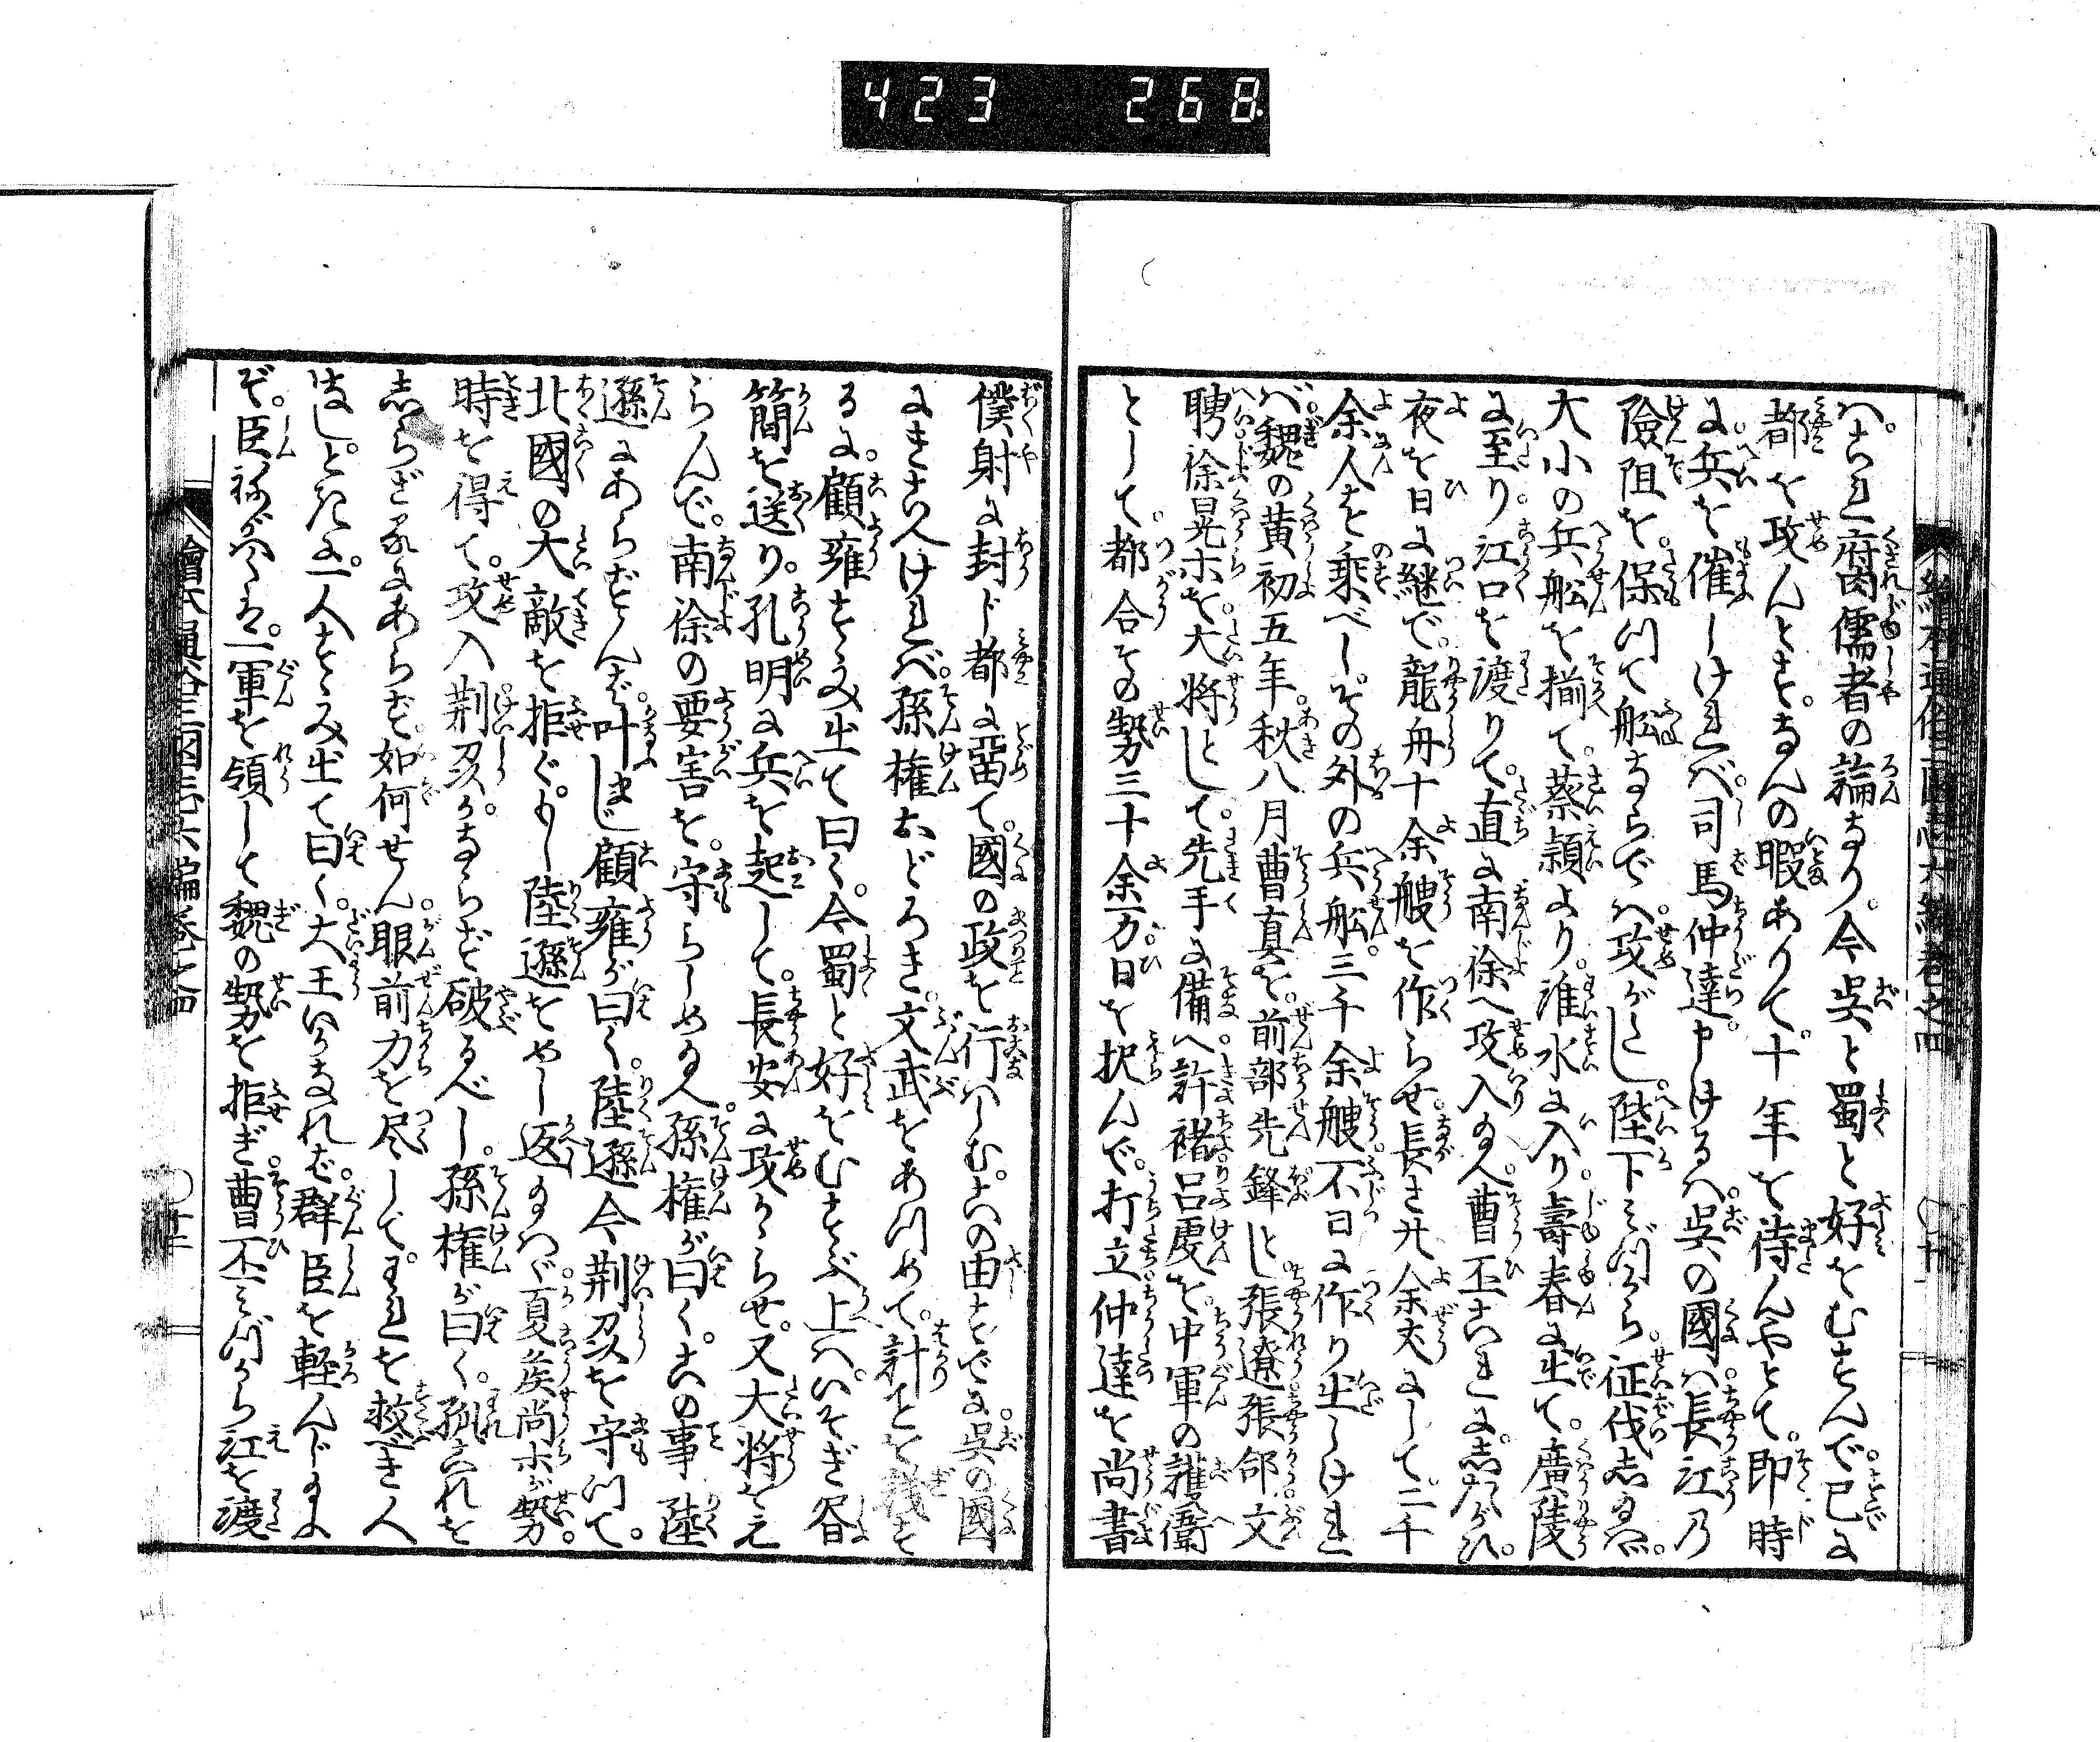 423 268
ハ。これ腐肉儒者の論なり。今呉と蜀と好をむすんで。已に
都を攻んとす。なんの暇ありて。十年を待んやとて。即時
に。兵を催しけれバ。司馬仲達申けるハ。呉の國ハ。長江乃
険阻を。保つて舩ならでハ。攻がたし。陛下ミづから。征伐志給ハヾ。
大小の兵舩を揃て。蔡潁より。淮水に入り。壽春に出て。廣陵
に至り。江口を渡りて。直に南徐へ攻入給へ。曹丕これに志たがひ。
夜を日に継で。龍舟十余艘を作らせ。長さ廿余丈にして。二千
余人を乗べし。その外の兵舩。三千余艘。不日に作り出しけれ
バ。魏の黄初五年。秋八月曹真を。前部先鋒とし。張遼。張郃。文
聘。徐晃ホを。大将として。先手に備へ。許褚。呂虔を。中軍の護衛
として。都合その勢三十余万。日を択んで。打立。仲達を尚書
僕射に封じ都に畱て。國の政を行ハしむ。この由すでに。呉の國
にきこへけれバ。孫権おどろき。文武をあつめて。計ごとを議す
る に。顧雍すゝみ出て曰く。今蜀と好をむすぶ上ハ。いそぎ昏
簡を送り。孔明に兵を起して。長安に攻かゝらせ。又大将をえ
らんで。南徐の要害を。守らしめ給へ。孫権が曰く。この事陸
遜にあらずんバ。叶まじ顧雍が曰く。陸遜今荆刕を守つて。
北國の大敵を拒ぐ。もし陸遜をめし返し給ハヾ。夏侯尚ホが勢。
時を得て。攻入。荆刕かならず破るべし。孫権が曰く。孤これを
志らざるにあらず。如何せん。眼前力を尽して。われを救べき人
なし。ときに。一人すゝみ出て曰く。大王いかなれバ。群臣を軽んじ給ふ
ぞ。臣ねがハくハ。一軍を領して魏の勢を拒ぎ。曹丕ミづから江を渡